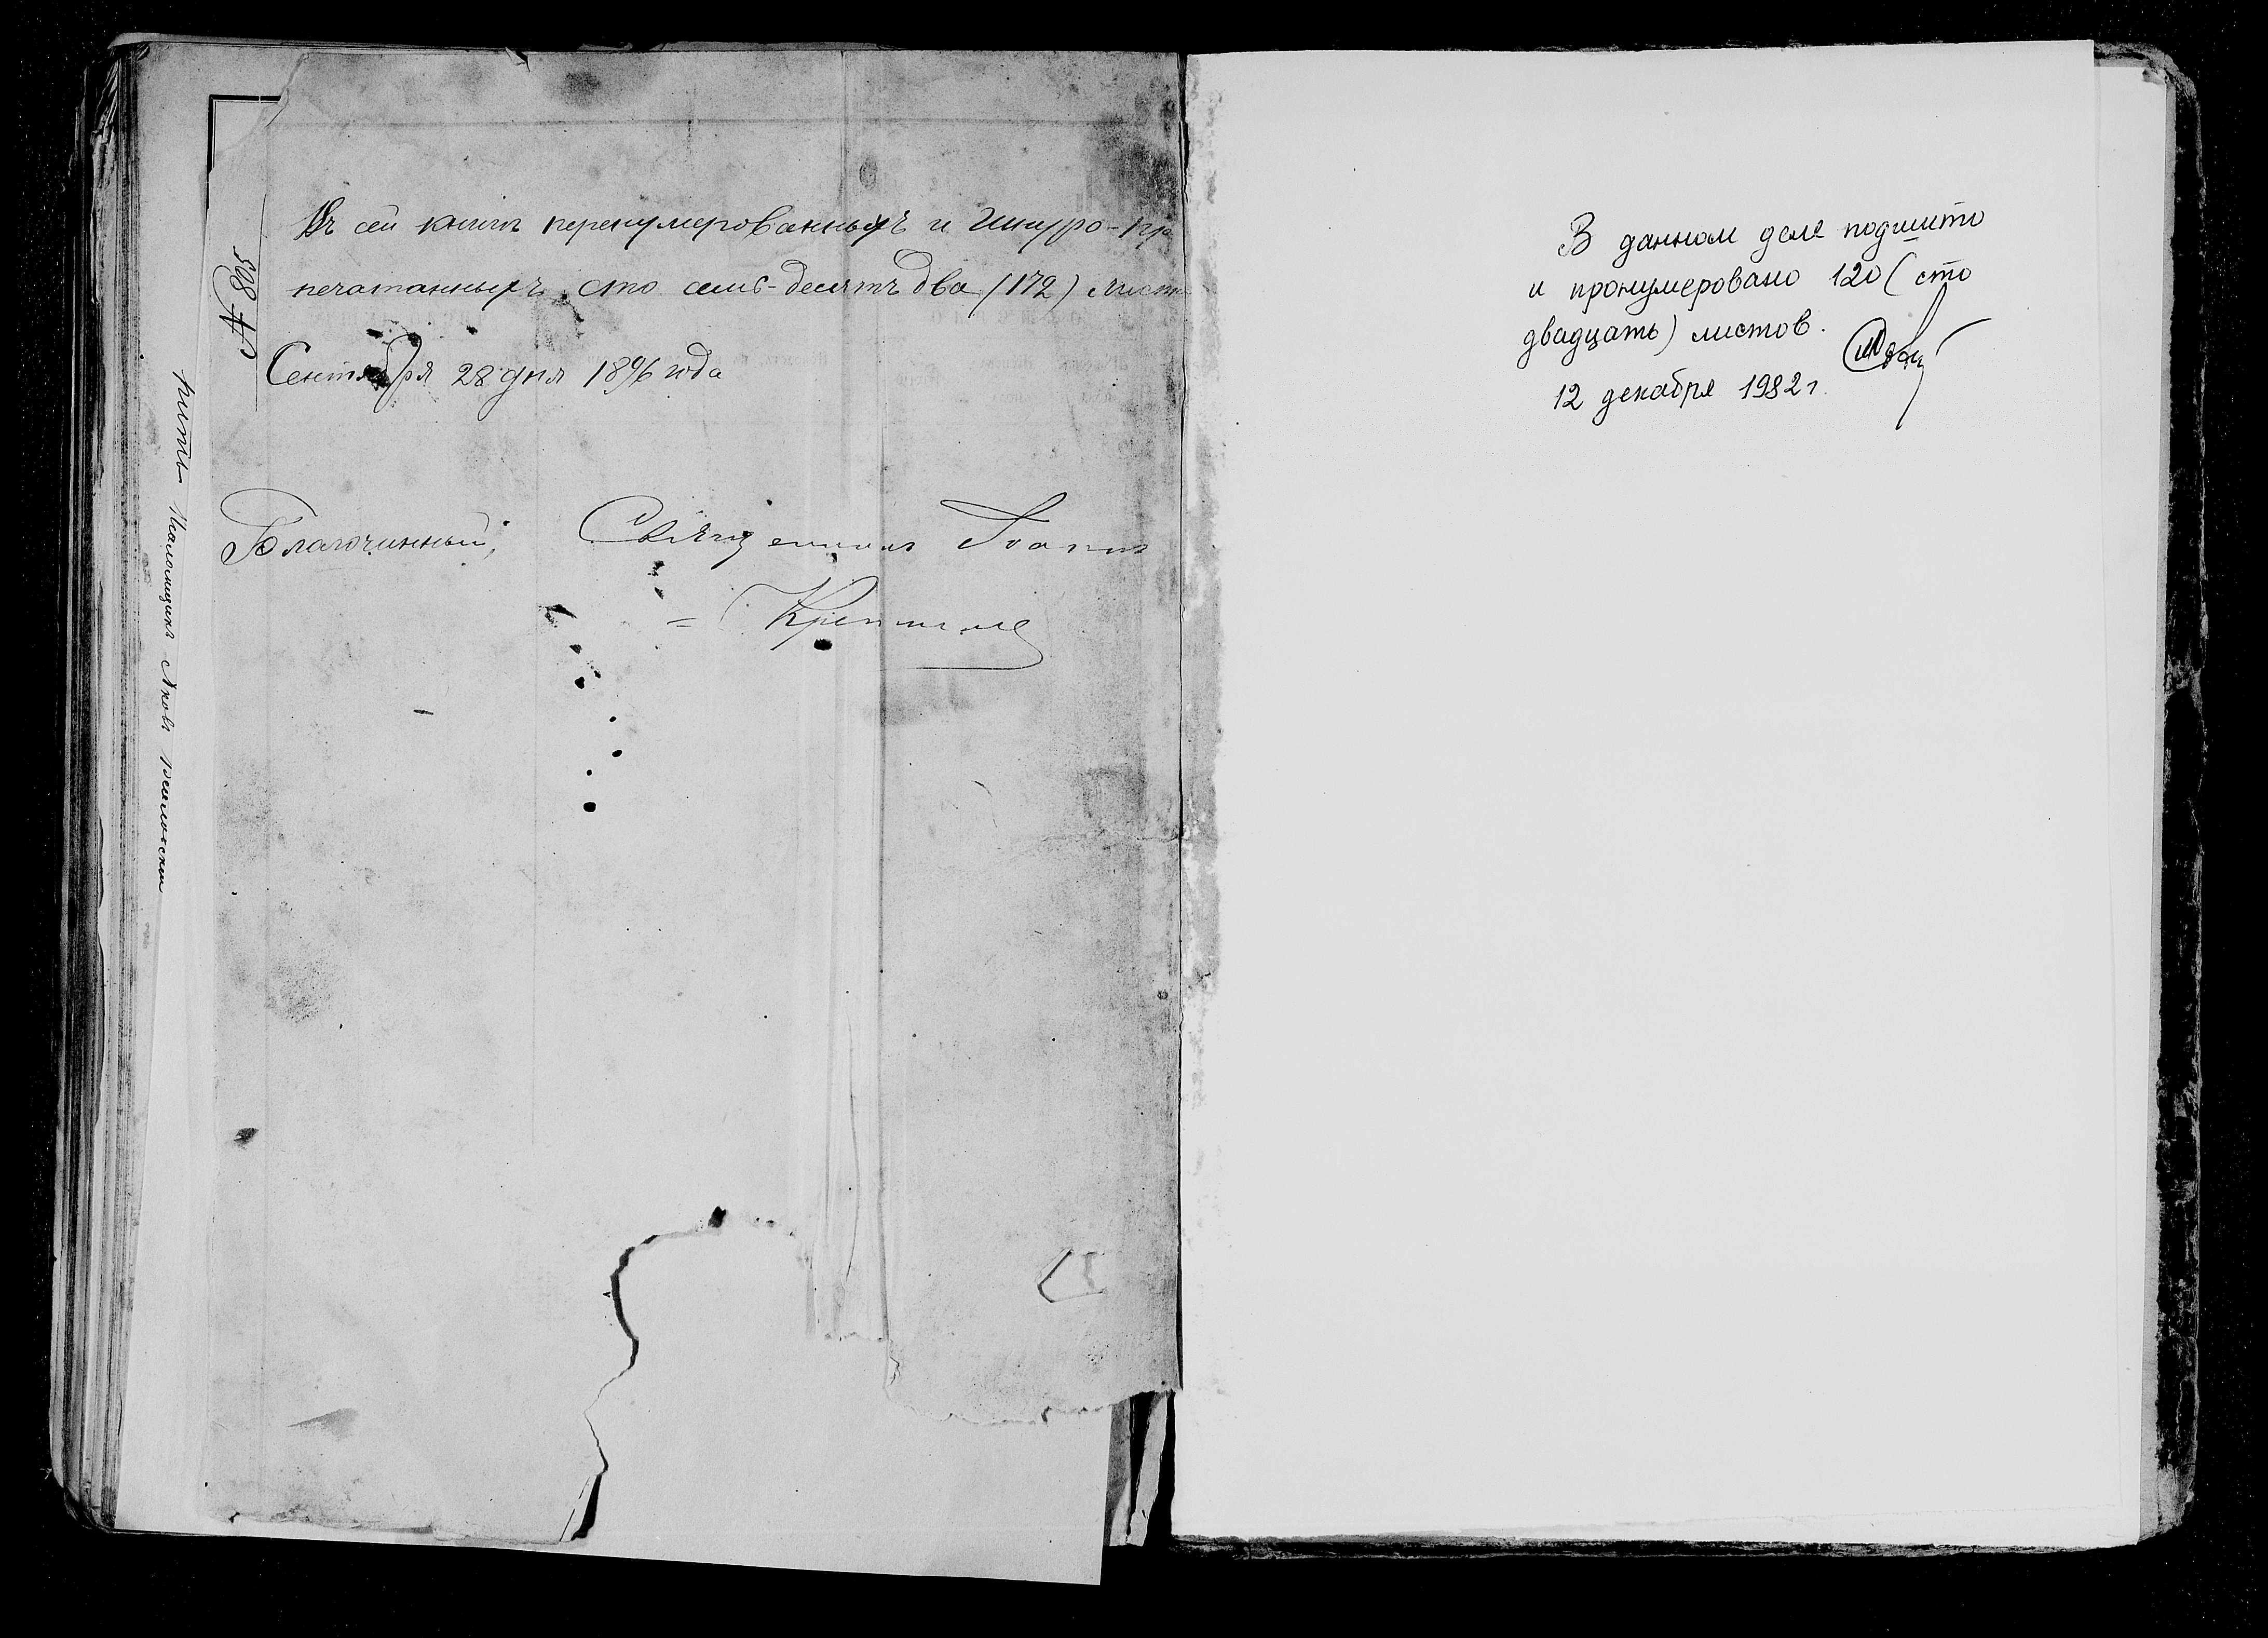 Въ сей книгѣ перенумерованныхъ и шнуро-пр
печатанныхъ сто семь-десятъ два (172) листа
Сентября 28 дня 1896 года
Благочинный, Священникъ Іоаннъ
№ 803
Псаломщикъ Яковъ
В данном деле подшито
и пронумеровано 120 (сто
двадцать) листов.
12 декабря 1982 г.